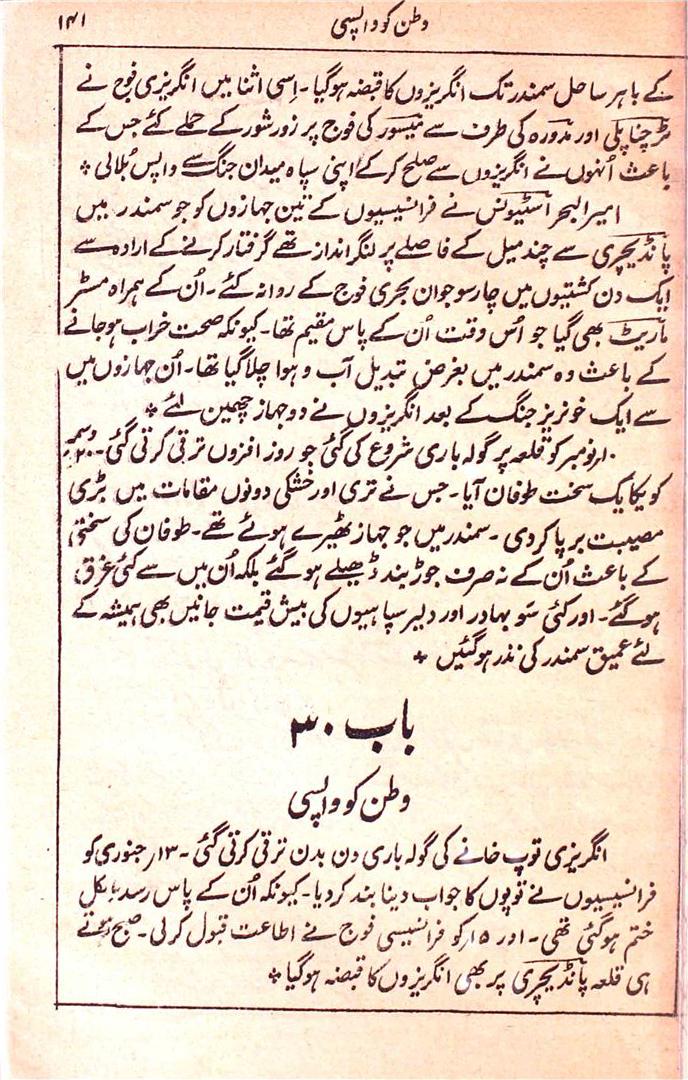 وطن کو واپسی
۱۴۱
کے باہر ساحل سمندر تک انگریزوں کا قبضہ ہوگیا۔ اِسی اثنا میں انگریزی فوج نے
ترچناپلی اور مدورہ کی طرف سے میسور کی فوج پر زور شور کے حملے کئے جس کے
باعث اُنھوں نے انگریزوں سے صلح کر کے اپنی سپاہ میدان جنگ سے واپس بُلالی *
امیر البحر اسٹیونس نے فرانسیسیوں کے تین جہازوں کو جو سمندر میں
پانڈیچری سے چند میل کے فاصلے پر لنگر انداز تھے گرفتار کرنے کے ارادہ سے
ایک دن کشتیوں میں چار سو جوان بحری فوج کے روانہ کئے۔ اُن کے ہمراہ مسٹر
ماریٹ بھی گیا جو اُس وقت اُن کے پاس مقیم تھا۔ کیونکہ صحت خراب ہوجانے
کے باعث وہ سمندر میں بغرض تبدیل آب و ہوا چلا گیا تھا۔ اُن جہازوں میں
سے ایک خونریز جنگ کے بعد انگریزوں نے دو جہاز چھین لئے *
۱۰ نومبر کو قلعہ پر گولہ باری شروع کی گئی جو روز افزوں ترقی کرتی گئی۔ ۲۰ دسمبر
کو یکایک سخت طوفان آیا۔ جس نے تری اور خشکی دونوں مقامات میں بڑی
مصیبت برپا کر دی۔ سمندر میں جو جہاز ٹھیرے ہوئے تھے۔ طوفان کی سختی
کے باعث اُن کے نہ صرف جوڑ بند ڈھیلے ہوگئے بلکہ اُن میں سے کئی غرق
ہوگئے۔ اور کئی سَو بہادر اور دلیر سپاہیوں کی بیش قیمت جانیں بھی ہمیشہ کے
لئے عمیق سمندر کی نذر ہوگئیں *
باب ۳۰
وطن کو واپسی
انگریزی توپ خانے کی گولہ باری دن بدن ترقی کرتی گئی۔ ۱۳ جنوری کو
فرانسیسیوں نے توپوں کا جواب دینا بند کر دیا۔ کیونکہ اُن کے پاس رسد بالکل
ختم ہوگئی تھی۔ اور ۱۵ کو فرانسیسی فوج نے اطاعت قبول کرلی۔ صبح ہوتے
ہی قلعہ پانڈیچری پر بھی انگریزوں کا قبضہ ہوگیا *